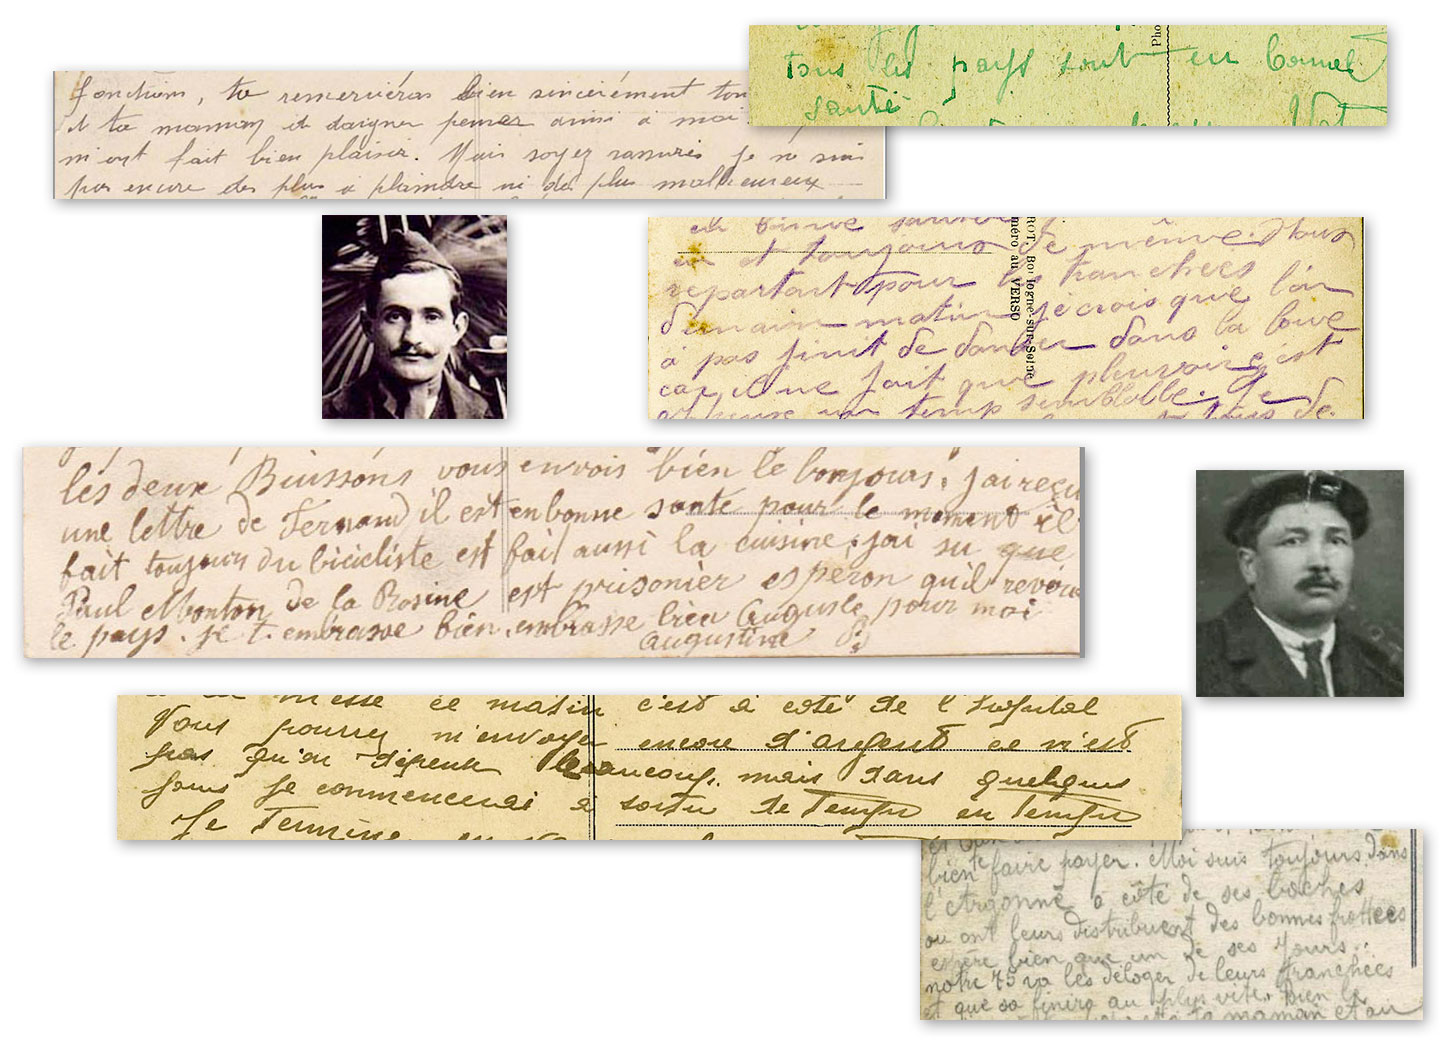 fonctions, tu remerciéras bien sincérement ton
et ta maman et daigner penser ainsi a moi
m'ont fait bien plaisir. Mais soyez rassurés je ne suis
pas encore des plus a plaindre ni des plus malheureux
Pho
tous les pays sont en bonne
santé
en bonne
et toujours de même. Nous
repartont pour les tranchées
demain matin je crois que l'on
a pas finit de danser dans la boue
car il ne fait que pleuvoir, c'est
un temps semblable. Je
tous de
ROT. Boulogne-sur-Seine
méro au VERSO
les deux Buissons vous envois bien le bonjours. j'ai reçu
une lettre de Fernand il est en bonne santé pour le moment il
fait toujours du bicicliste est fait aussi la cuisine, j'ai su que
Paul Monton de la Rosine est prisonièr esperon qu'il revoira
le pays. je t'embrasse bien. embrasse bien Auguste pour moi
Augustine
messe ce matin c'est à coté de l'hopital
Vous pourrez m'envoyer encore d'argent ce n'est
pas qu'on dépense beaucoup. mais dans quelques
jours je commencerai à sortir de temps en temps
Je termine
bien faire payer. Moi suis toujours dans
l'Argonne a côté de ses boches
ou ont leurs distribuent des bonnes frottées
espère bien que un de ses jours..
notre 75 va les déloger de leurs tranchées
et que sa finira au plus vite. Bien le
maman et au